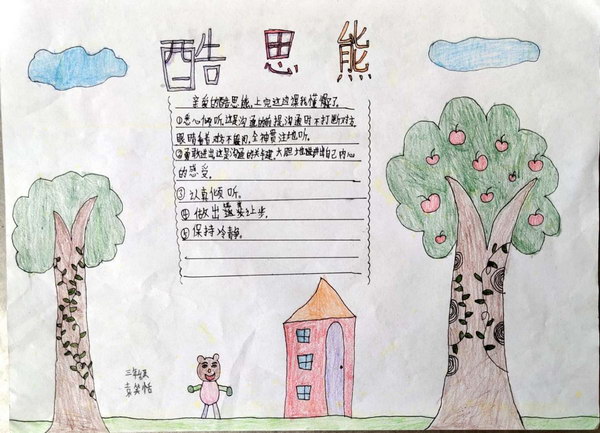 酷思熊
亲爱的酷思熊，上完这边课我懂得了。
①悉心倾听，这是沟通的前提，沟通时不打断对方，
眼睛看着对方不乱用，全神贯注地听。
②勇敢说出这是沟通的关键，大胆地讲出自己内心
的感受。
③认真倾听。
④做出让步。
⑤保持冷静。
三年级
袁笑恬